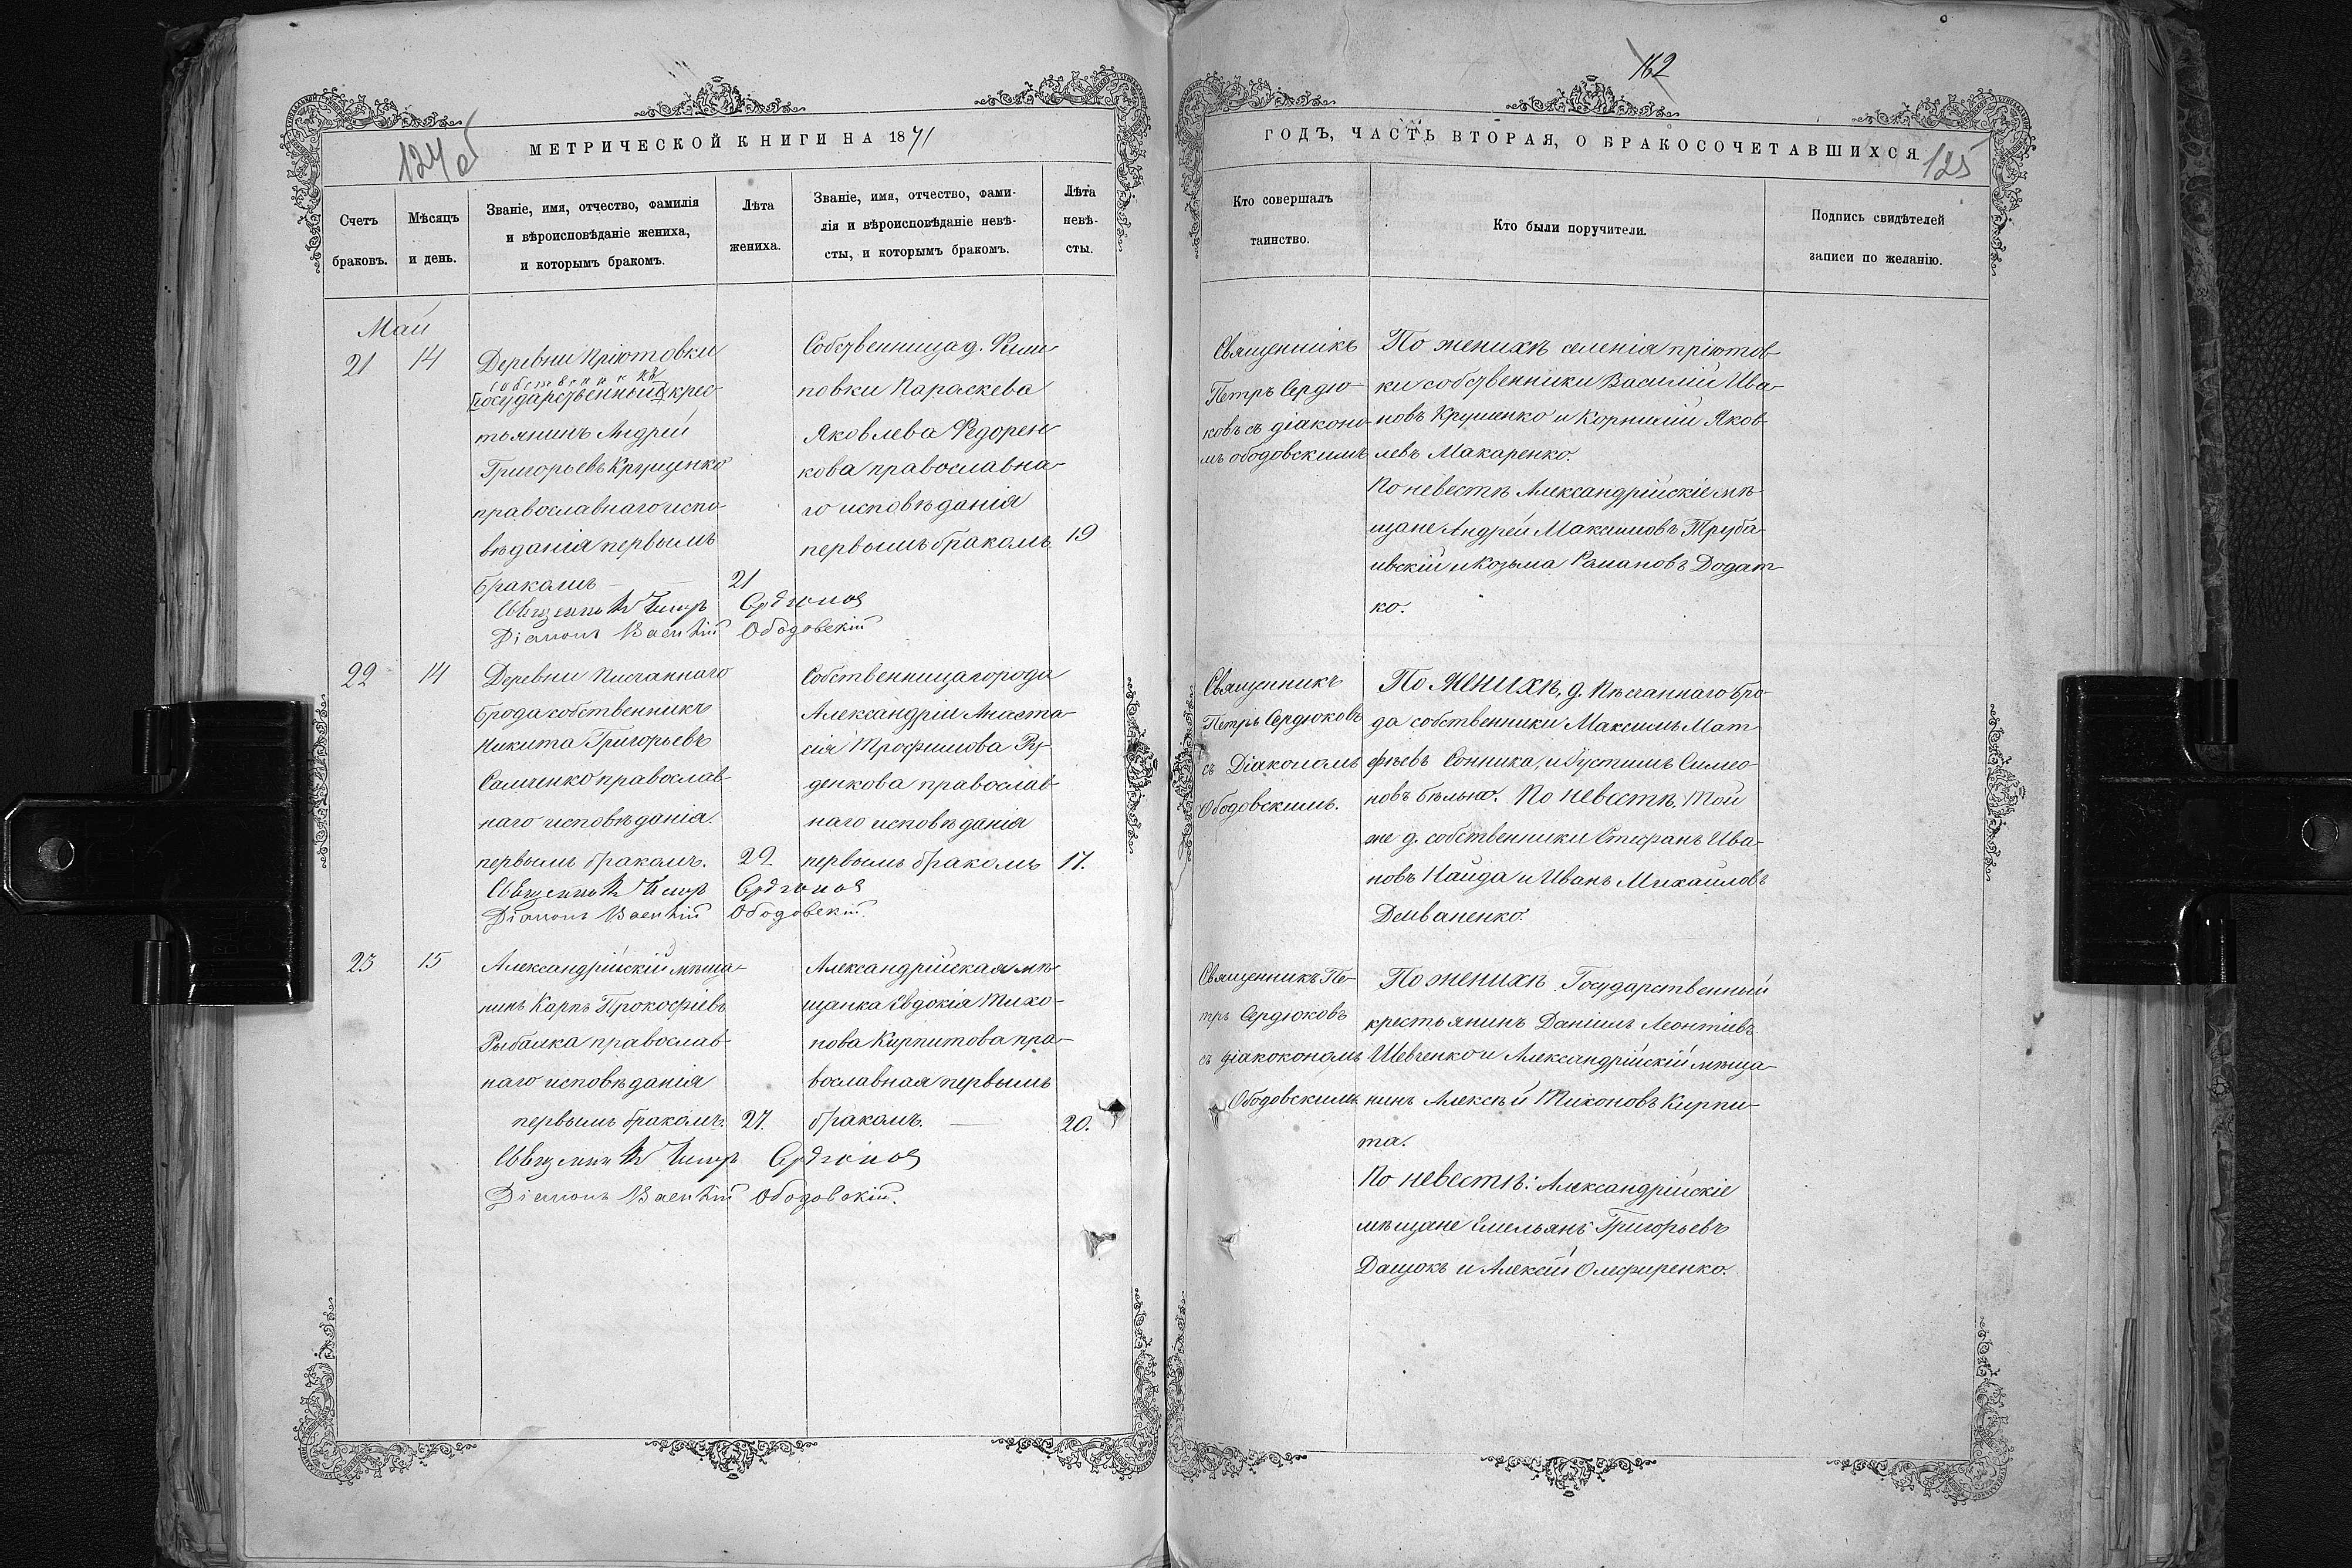 124 об
МЕТРИЧЕСКОЙ КНИГИ НА 1871
Счетъ
браковъ.
Мѣсяцъ
и день.
Званіе, имя, отчество, фамилія
и вѣроисповѣданіе жениха,
и которымъ бракомъ.
Лѣта
жениха.
Званіе, имя, отчество, фами-
лія и вѣроисповѣданіе невѣ-
сты, и которымъ бракомъ.
Лѣта
невѣ-
сты.
Май
21
14
Деревни Пріютовки
собственникъ
[государственный] крес-
тьянинъ Андрей
Григорьевъ Крущенко
православнаго испо-
вѣданія первымъ
бракомъ
21
Собственница д.
повки Параскева
Яковлева Федорен
кова православна-
го исповѣданія
первымъ бракомъ.
19
Священникъ Петръ Сердюковъ
Діаконъ Василій Ободовскій
22
14
Деревни Писчаннаго
брода собственникъ
Никита Григорьевъ
Самченко православ-
наго исповѣданія
первымъ бракомъ.
22
Собственница города
Александріи Анаста-
сія Трофимова Ру-
денкова православ-
наго исповѣданія
первымъ бракомъ
17.
Священникъ Петръ Сердюковъ
Діаконъ Василій Ободовскій.
23
15
Александрійскій мѣща-
нинъ Карпъ Прокофіевъ
Рыбалка православ-
наго исповѣданія
первымъ бракомъ.
27.
Александрійская мѣ-
щанка Евдокія Тихо-
нова Кирпитова пра-
вославная первымъ
бракомъ.
20.
Священникъ Петръ Сердюковъ
Діаконъ Василій Ободовскій.
162
ГОДЪ, ЧАСТЬ ВТОРАЯ, О БРАКОСОЧЕТАВШИХСЯ.
125
Кто совершалъ
таинство.
Кто были поручители.
Подпись свидѣтелей
записи по желанію.
Священникъ
Петръ Сердю-
ковъ съ діаконо-
мъ ободовскимъ
По женихѣ селенія пріютов-
ки собственники Василій Ива-
новъ Крушенко и Корнилій Яков-
левъ Макаренко.
По невестѣ Александрійскіе мѣ-
щане Андрей Максимовъ Труба-
ивскій и Козьма Романовъ Додат-
ко.
Священникъ
Петръ Сердюковъ
съ Діакономъ
Ободовскимъ.
По женихѣ, д. Пѣсчаннаго бро-
да собственники Максимъ Мат-
фѣевъ Сонника, и Устимъ Симео-
новъ По невестѣ, той
же д. собственники Стефанъ Ива-
новъ Найда и Иванъ Михайловъ
Демваненко.
Священникъ Пе-
тръ Сердюковъ
съ діакокономъ
Ободовскимъ
По женихѣ Государственный
крестьянинъ Даніилъ Леонтіевъ
Шевченко и Александрійскій мѣща-
нинъ Алексѣй Тихоновъ Кирпи-
та.
По невестѣ: Александрійскіе
мѣщане Емельянъ Григорьевъ
Дащокъ и Алексій Олефиренко.